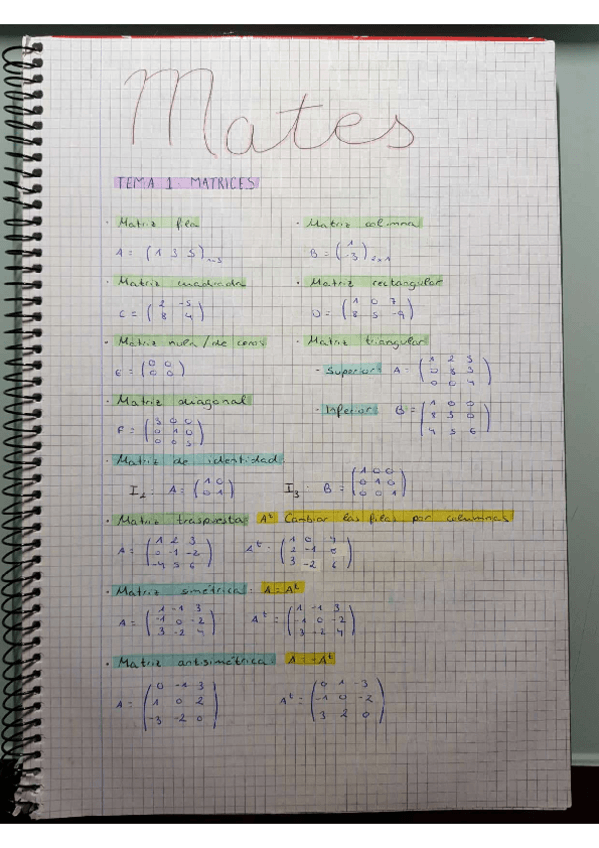 Mates
TEMA 1. MATRICES
· Matriz fila · Matriz columna
A = (1 3 5) B = (1
-3)2x1
· Matriz cuadrada · Matriz rectangular
C = (2 -5
8 4) D = (1 0 7
8 5 -9)
· Matriz nula/de ceros · Matriz triangular
E = (0 0
0 0)
· Superior A = (1 2 3
0 8 3
0 0 4)
· Matriz diagonal
F = (3 0 0
0 1 0
0 0 5)
· Inferior B = (1 0 0
8 3 0
4 5 6)
· Matriz de identidad
I2 · A = (1 0
0 1) I3 · B = (1 0 0
0 1 0
0 0 1)
· Matriz traspuesta At Cambiar las filas por columnas
A = (1 2 3
0 -1 -2
-4 5 6) At = (1 0
2 -1
3 -2 6)
· Matriz simétrica · A = At
A = (1 -1 3
-1 0 -2
3 -2 4) At = (1 -1 3
-1 0 -2
3 -2 4)
· Matriz antisimétrica · A = -At
A = (0 -1 3
1 0 2
-3 -2 0) At = (0 1 -3
-1 0 -2
3 2 0)